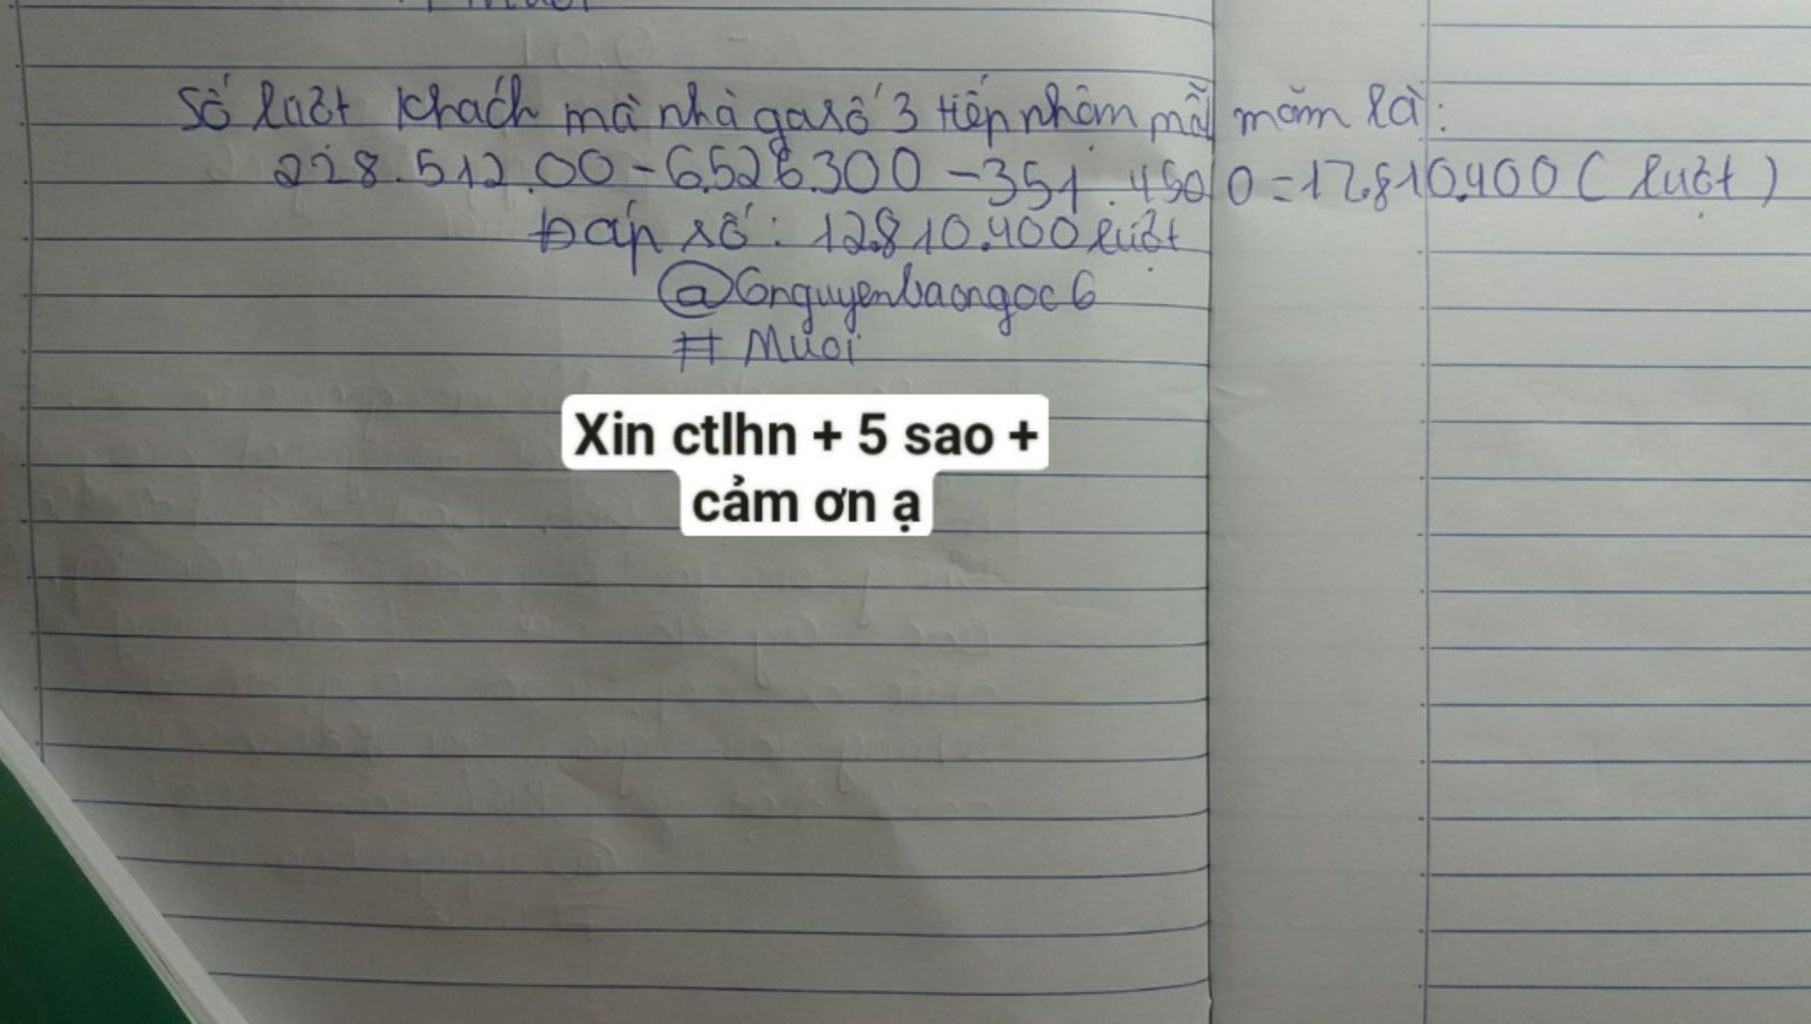 Số lượt khách mà nhà ga số 3 tiếp nhận mỗi năm là:
228.512.00 - 6.528.300 - 351.450 0 = 12.810.400 ( lượt )
Đáp số: 12.810.400 lượt
@Gnguyenbaongoc6
# Muoi
Xin ctlhn + 5 sao +
cảm ơn ạ